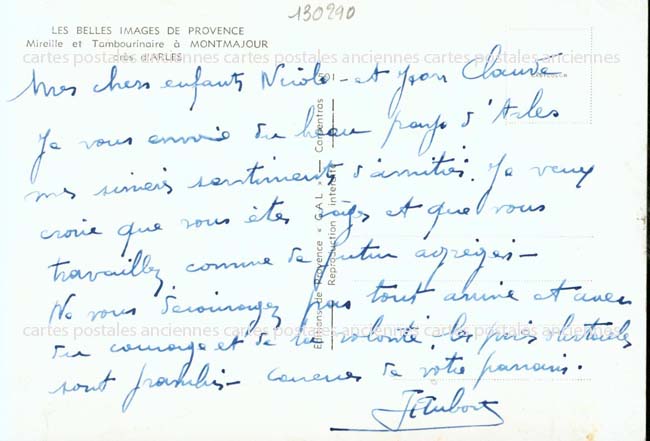 130290
LES BELLES IMAGES DE PROVENCE
Mireille et Tambourinaire à MONTMAJOUR
près d'ARLES
cartes postales anciennes cartes postales anciennes cartes postales anciennes
Mes chers enfants Nicole et Jean Claude
Je vous envoie du beau pays d'Arles
mes sincères sentiments d'amitiés. Je veux
croire que vous êtes sages et que vous
travaillez comme de futur agrégés -
Ne vous découragez pas tout arrive et avec
cartes postales anciennes cartes postales anciennes cartes postales anciennes
du courage et de la volonté, les pires obstacles
sont franchis - de votre parrain.
Editions de Provence « G.A.L » - Carpentras
Reproduction interdite